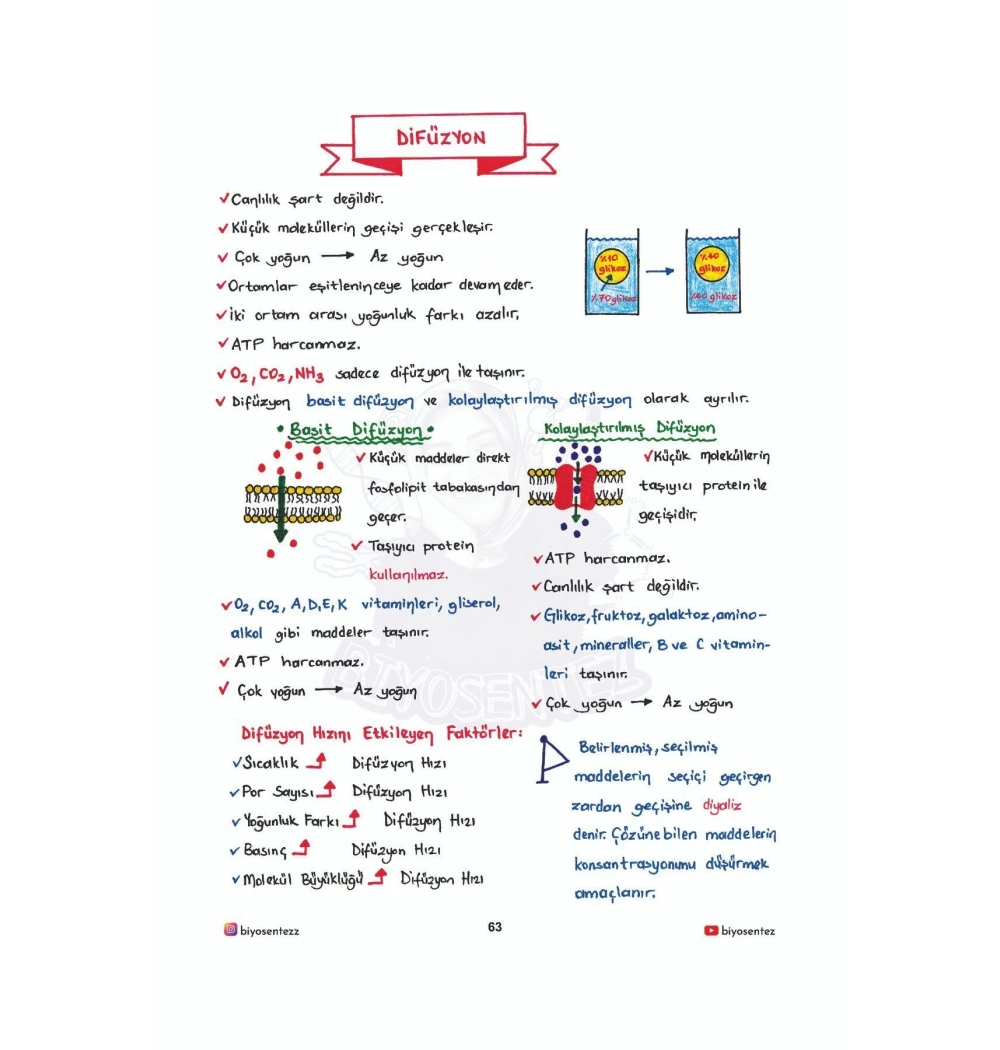 DİFÜZYON
✓ Canlılık şart değildir.
✓ Küçük moleküllerin geçişi gerçekleşir.
✓ Çok yoğun → Az yoğun
✓ Ortamlar eşitleninceye kadar devam eder.
✓ İki ortam arası yoğunluk farkı azalır.
✓ ATP harcanmaz.
✓ O2, CO2, NH3 sadece difüzyon ile taşınır.
✓ Difüzyon basit difüzyon ve kolaylaştırılmış difüzyon olarak ayrılır.
%10
glikoz
%70 glikoz
→
%40
glikoz
%40 glikoz
• Basit Difüzyon •
✓ Küçük maddeler direkt
fosfolipit tabakasından
geçer.
✓ Taşıyıcı protein
kullanılmaz.
✓ O2, CO2, A, D, E, K vitaminleri, gliserol,
alkol gibi maddeler taşınır.
✓ ATP harcanmaz.
✓ Çok yoğun → Az yoğun
Kolaylaştırılmış Difüzyon
✓ Küçük moleküllerin
taşıyıcı protein ile
geçişidir.
✓ ATP harcanmaz.
✓ Canlılık şart değildir.
✓ Glikoz, fruktoz, galaktoz, amino-
asit, mineraller, B ve C vitamin-
leri taşınır.
✓ Çok yoğun → Az yoğun
Difüzyon Hızını Etkileyen Faktörler:
✓ Sıcaklık Difüzyon Hızı
✓ Por Sayısı Difüzyon Hızı
✓ Yoğunluk Farkı Difüzyon Hızı
✓ Basınç Difüzyon Hızı
✓ Molekül Büyüklüğü Difüzyon Hızı
Belirlenmiş, seçilmiş
maddelerin seçiçi geçirgen
zardan geçişine diyaliz
denir. Çözünebilen maddelerin
konsantrasyonunu düşürmek
amaçlanır.
BİYOSENTEZ
biyosentezz
63
biyosentez